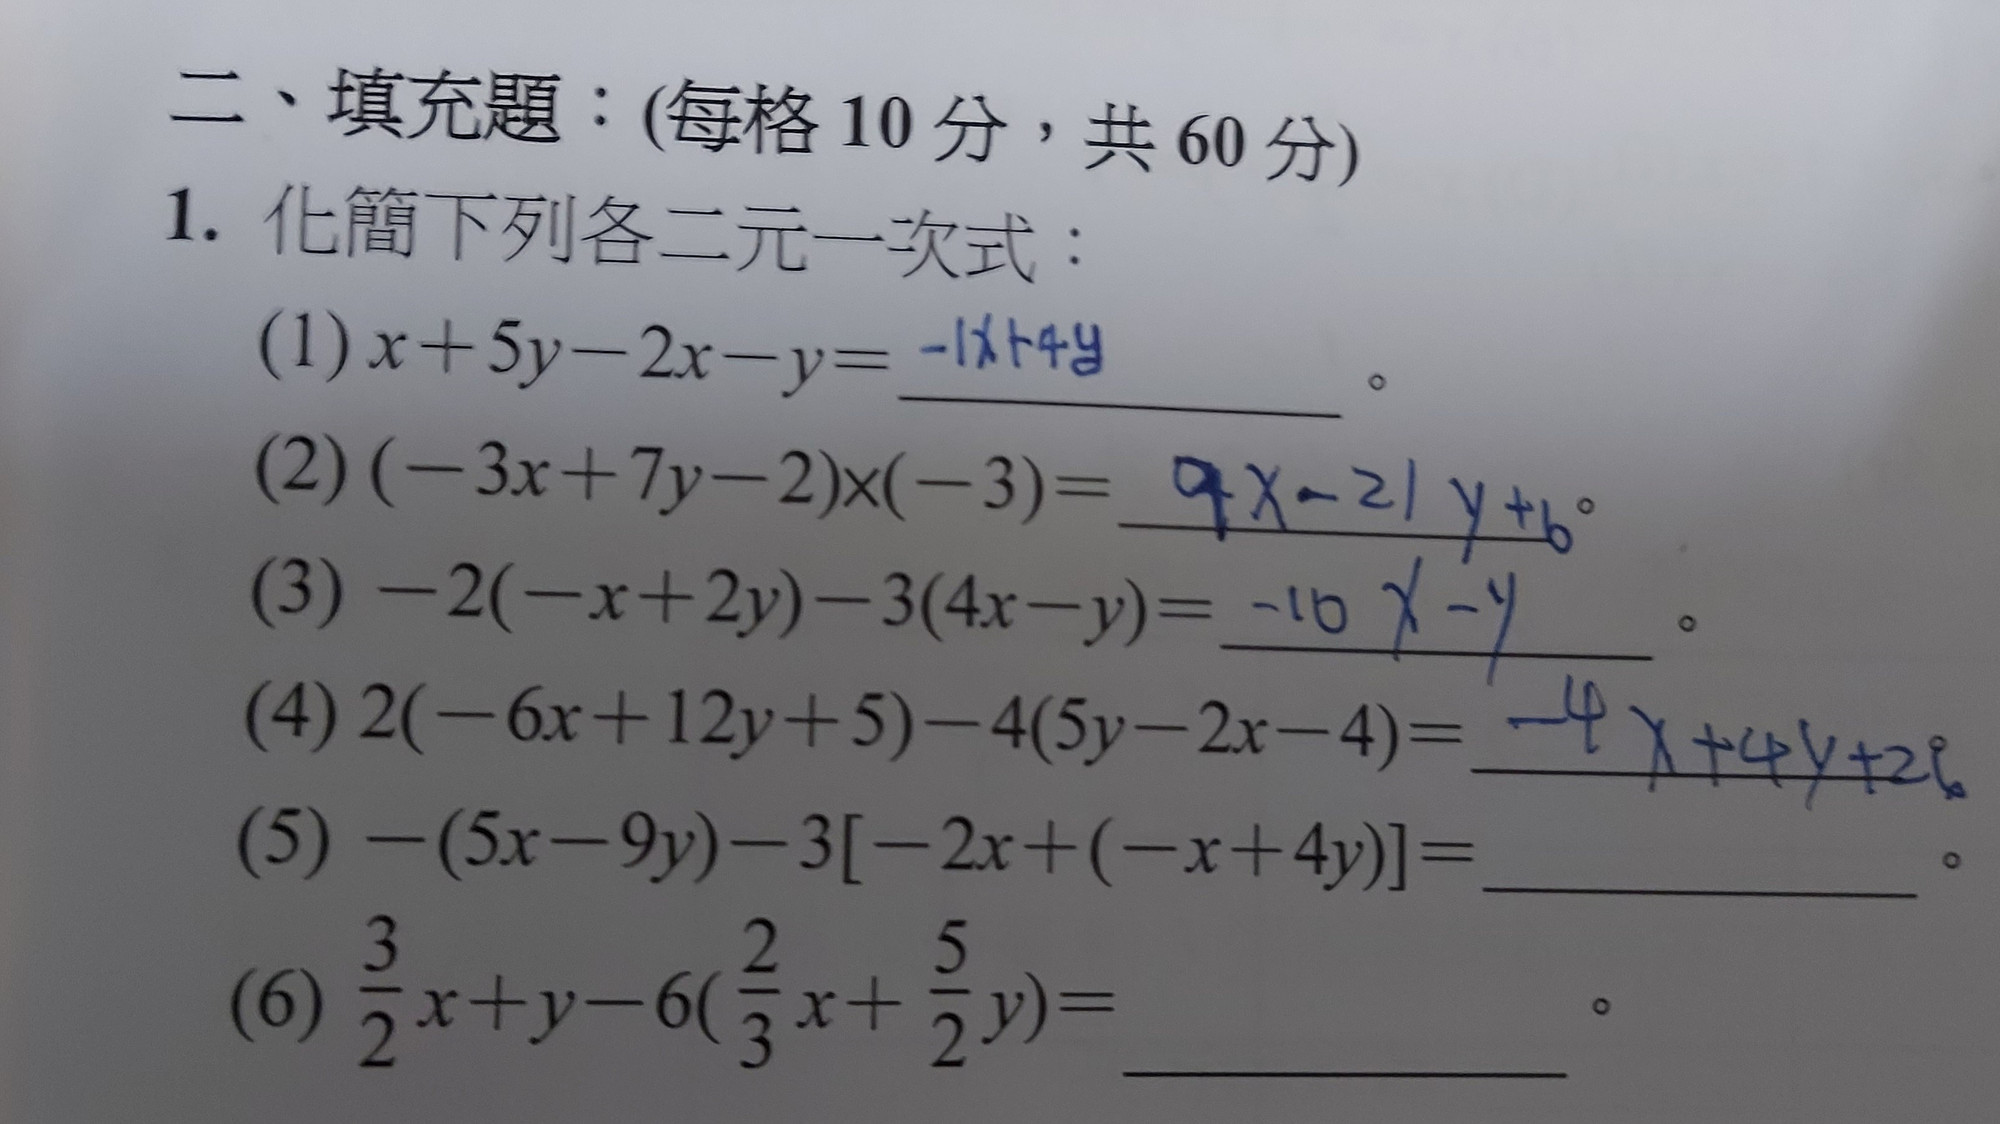 二、填充題：(每格 10 分，共 60 分)
1. 化簡下列各二元一次式：
(1) x+5y−2x−y= -1x+4y 。
(2) (−3x+7y−2)×(−3)= 9x-21y+6。
(3) −2(−x+2y)−3(4x−y)= -10x-y 。
(4) 2(−6x+12y+5)−4(5y−2x−4)= -4x+4y+26
(5) −(5x−9y)−3[−2x+(−x+4y)]=______。
(6) 3/2x+y−6(2/3x+5/2y)=______。